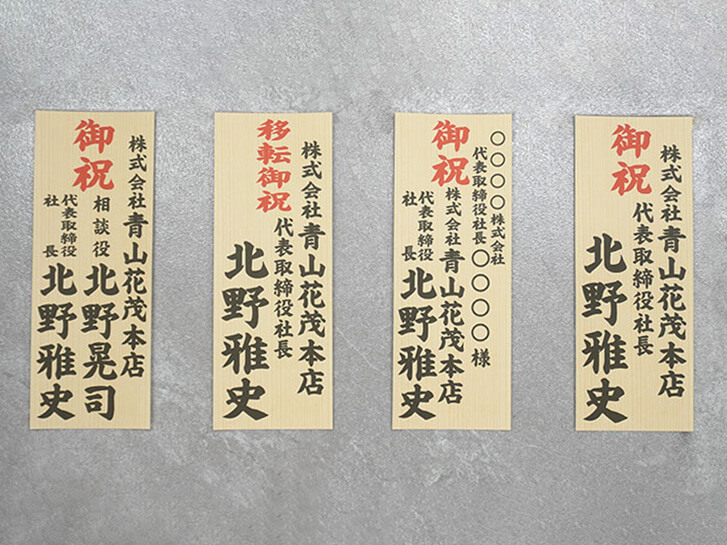 御祝
株式会社青山花茂本店
相談役 北野晃司
代表取締役社長 北野雅史
移転御祝
株式会社青山花茂本店
代表取締役社長
北野雅史
御祝
〇〇〇〇株式会社
代表取締役社長〇〇〇〇様
株式会社青山花茂本店
代表取締役社長 北野雅史
御祝
株式会社青山花茂本店
代表取締役社長
北野雅史